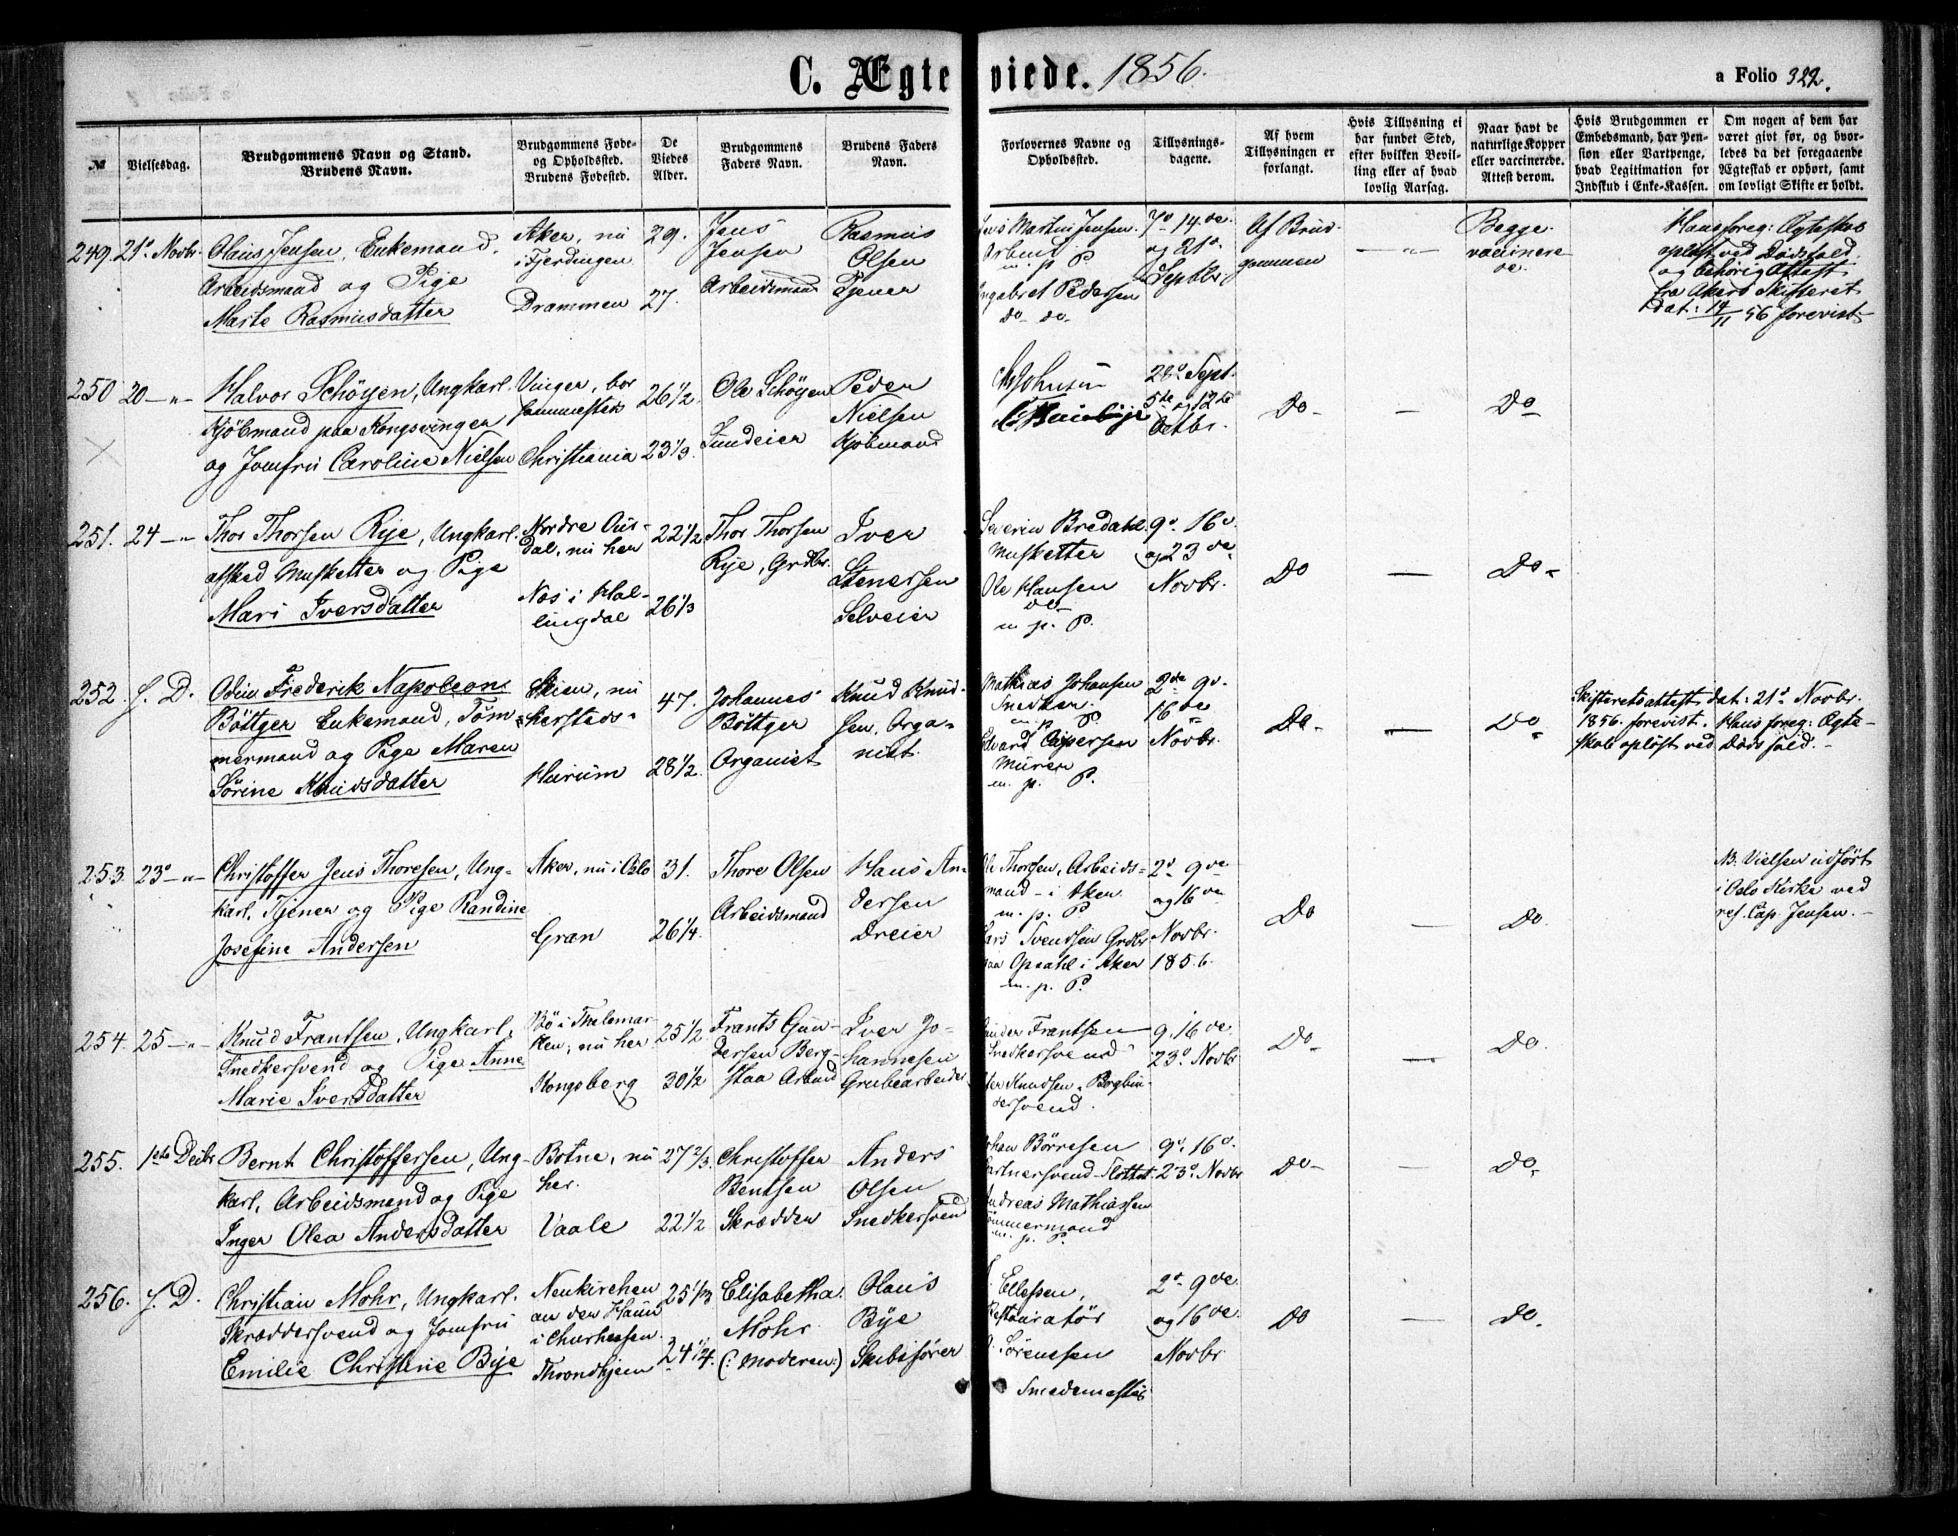 C. Ægteviede. 1856.
a Folio 322.
№
Vielsesdag.
Brudgommens Navn og Stand.
Brudens Navn.
Brudgommens Føde-
og Opholdssted.
Brudens Fødested.
De
Viedes
Alder.
Brudgommens
Faders Navn.
Brudens Faders
Navn.
Forlovernes Navne og
Opholdssted.
Tillysnings-
dagene.
Af hvem
Tillysningen er
forlangt.
Hvis Tillysning ei
har fundet Sted,
efter hvilken Bevil-
ling eller af hvad
lovlig Aarsag.
Naar havt de
naturlige Kopper
eller vaccinerede.
Attest derom.
Hvis Brudgommen er
Embedsmand, har Pen-
sion eller Vartpenge,
hvad Legitimation for
Indskud i Enke-Kassen.
Om nogen af dem har
været givt før, og hvor-
ledes da det foregaaende
Ægteskab er ophørt, samt
om lovligt Skifte er holdt.
249. 21de Novbr.
Olaus Jensen, Enkemand,
Arbeidsmand og Pige
Marte Rasmusdatter
Aker, nu
i Fjerdingen
Drammen
29.
27.
Jens
Jensen
Arbeidsmand
Rasmus
Olsen
Tjener
Martin Jensen
Arbm
m. p. P
Ingebret Pedersen
do do
7de 14de
og 21de
Septbr.
Af Brud-
gommen
— " —
Begge
vaccinere
de.
Hans foreg: Ægteskab
opløst ved Dødsfald
og behørig Attest
fra Akers Skifteret
Dat: 14/11 56 forevist
250 20 — " —
Halvor Schöyen, Ungkarl.
Kjöbmand paa Kongsvinger
og Jomfru Caroline Nielsen
Vinger, bor
sammesteds
Christiania
26 1/2
23 1/3
Ole Schöyen
Peder
Nielsen
Kjöbmand
28de Sept.
5te og 12te
Octbr.
Do
—
Do
251. 24 — "
Thor Thorsen Rye, Ungkarl.
afsked Musketter og Pige
Mari Iversdatter
Nordre Aur-
dal, nu her
Næs i Hal-
lingdal
22 1/2
26 1/3
Thor Thorsen
Rye, Grdbr.
Iver
Stenersen
Selveier
Severin Bredahl
Musketter
Ole Hansen
do
m. p. P.
9de 16de
og 23de
Novbr.
Do
—
Do
252. s. D.
Odin Frederik Napoleon
Böttger Enkemand, Töm-
mermand og Pige Maren
Sörine Knudsdatter
Skien, nu
hersteds
Hurum
47.
28 1/2.
Johannes
Böttger
Organist
Knud Knud-
sen, Orga-
nist.
Mathias Johansen
Snedker.
m. p. P.
Edvard Caspersen
Murer
m. p. P.
2de 9de
16de
Novbr.
Do
—
Do
Skifteretsattest dat: 21de Novbr.
1856. forevist. Hans foreg: Ægte-
skab opløst ved Dødsfald. —
253. 23de — " —
Christoffer Jens Thoresen, Ung-
karl, Tjener og Pige Randine
Josefine Andersen
Aker, nu i Oslo
Gran
31.
26 1/4.
Thore Olsen
Arbeidsmand
Hans An-
dersen
Dreier
Ole Thorsen, Arbeids-
mand — i Aker
m. p. P
Lars Svendsen Grdbr
paa Opsahl i Aker
m. p. P.
2de 9de
og 16de
Novbr.
1856.
Do
—
Do.
NB. Vielsen udført
i Oslo Kirke ved
res. Cap. Jensen. —
254. 25 — " —
Knud Frantsen, Ungkarl,
Snedkersvend og Pige Anne
Marie Iversdatter
Bö i Thelemar-
ken, nu her
Kongsberg
25 1/2
30 1/2
Frants Gun-
dersen Berg-
staa Arbmd
Iver Jo-
hannesen
Grubearbeider
Gunder Frantsen
Snedkersvend
Knudsen, Bogbin-
dersvend.
9, 16de
23de Novbr
Do
—
Do.
255. 1ste Decbr
Bernt Christoffersen, Ung-
karl, Arbeidsmand og Pige
Inger Olea Andersdatter
Botne, nu
her.
Vaale
27 2/3.
22 1/2
Christoffer
Bentsen
Skrædder
Anders
Olsen
Snedkersvend
Johan Börresen
Gartnersvend
Andreas Mathiassen
Tömmermand
m. p. P.
9de 16de
23de Novbr
Do
—
Do
256. s. D.
Christian Mohr, Ungkarl.
Skræddersvend og Jomfru
Emilie Christine Bye
Neukirchen
an der Haun
i Churhessen.
Throndhjem
25 1/3
24 1/4.
Elisabetha
Mohr.
(: Moderen :)
Olaus
Bye
Skibsförer
Ellefsen,
Restauratör
Sörensen
Smedemester
2de 9de
og 16de
Novbr
Do
—
do.